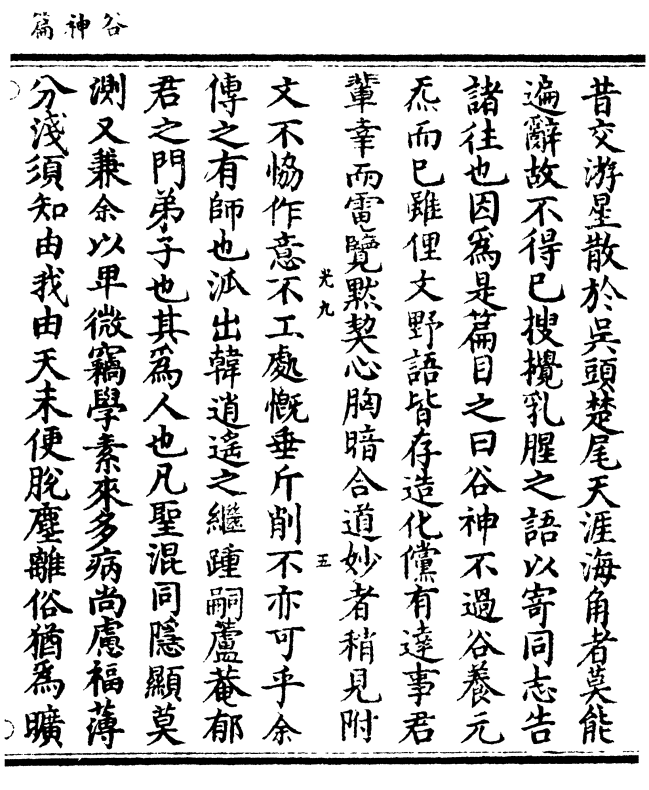 谷神篇
昔交游星散於吳頭楚尾天涯海角者莫能
遍辭故不得已搜攪乳腥之語以寄同志告
諸往也因爲是篇目之曰谷神不過谷養元
炁而已雖俚文野語皆存造化儻有達事君
輩幸而電覽默契心胸暗合道妙者稍見附
光九
五
文不恊作意不工處慨垂斤削不亦可乎余
傳之有師也泒出韓逍遙之繼踵嗣蘆菴郁
君之門弟子也其爲人也凡聖混同隱顯莫
測又兼余以卑微竊學素來多病尚慮福薄
分淺須知由我由天未便脫塵離俗猶爲曠